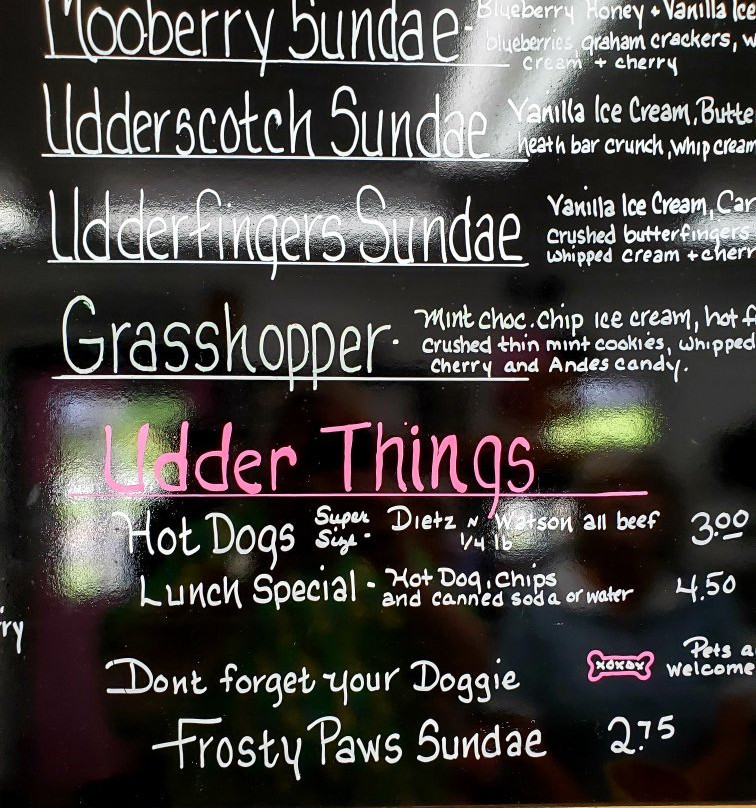 Mooberry Sundae- Blueberry Honey + Vanilla Ice
blueberries, graham crackers, w
cream + cherry
Udderscotch Sundae Vanilla Ice Cream, Butte
heath bar crunch, whip cream
Udderfingers Sundae Vanilla Ice Cream, Car
crushed butterfingers
whipped cream + cherr
Grasshopper- Mint choc. chip ice cream, hot f
crushed thin mint cookies, whipped
cherry and Andes candy.
Udder Things
Hot Dogs Super Size- Dietz N Watson all beef 1/4 lb 3.00
Lunch Special - Hot Dog, chips
and canned soda or water 4.50
ry
Dont forget your Doggie xoxox Pets a
welcome
Frosty Paws Sundae 2.75